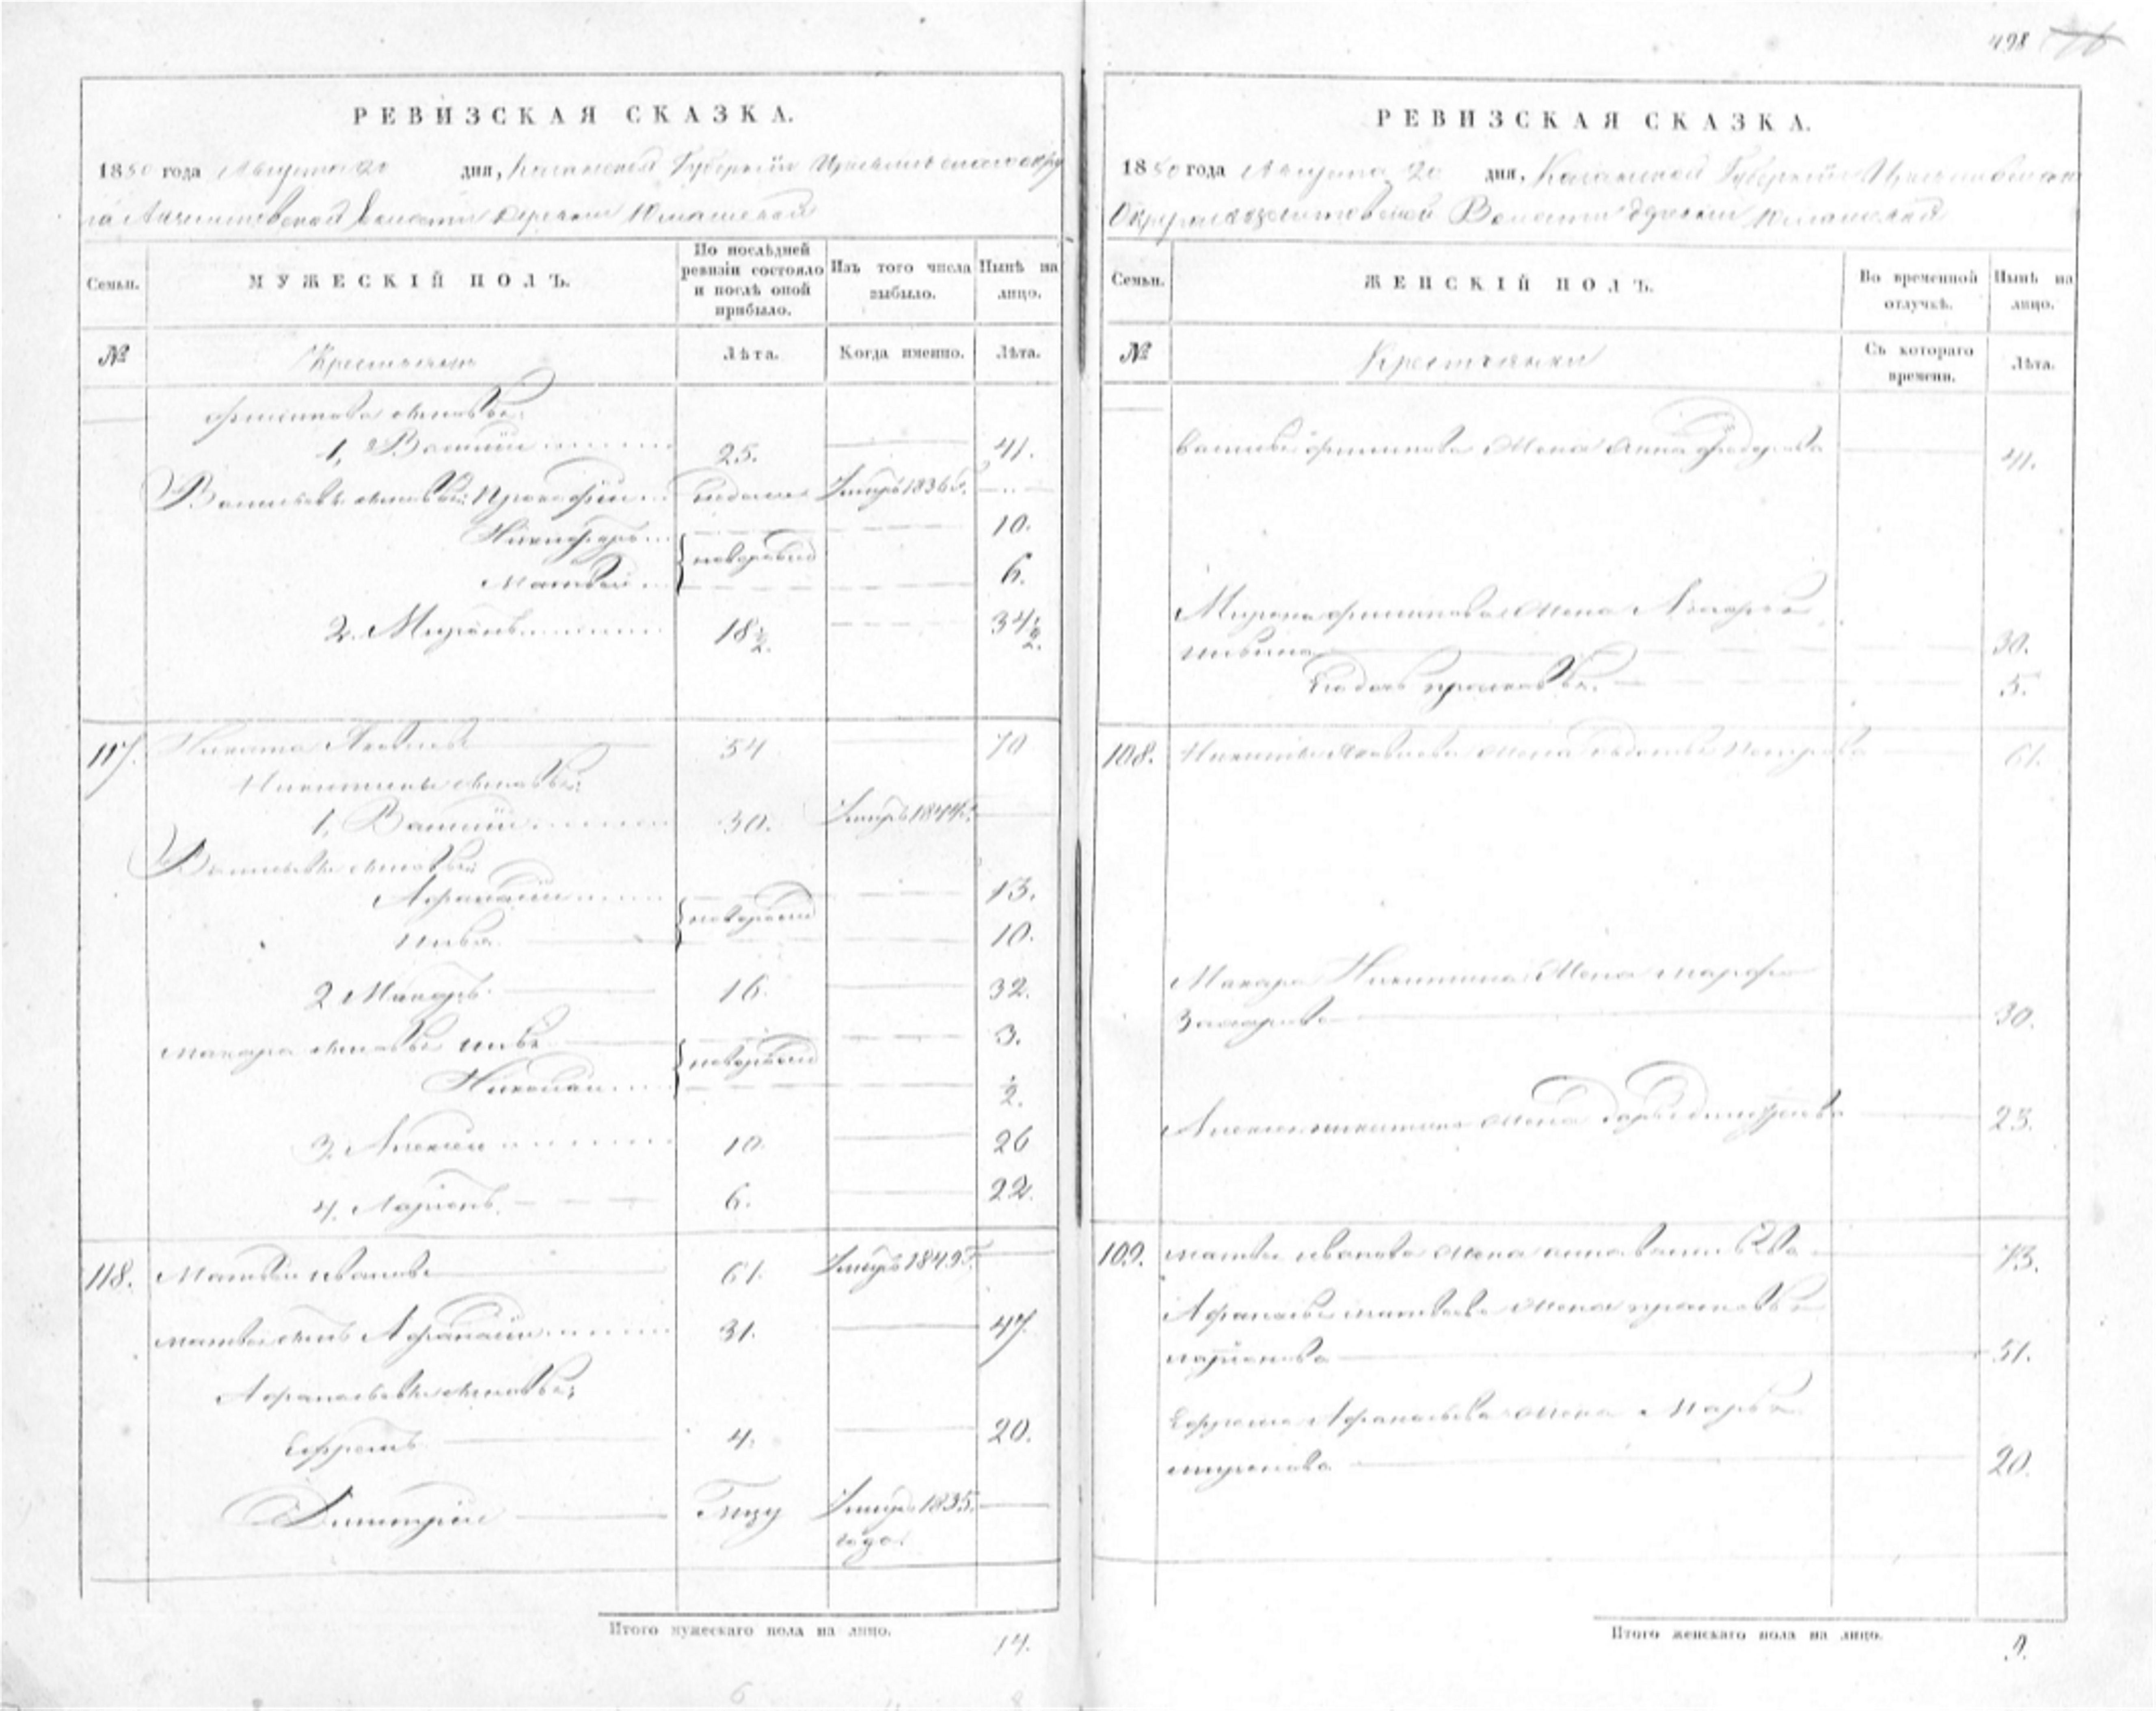 498
РЕВИЗСКАЯ СКАЗКА.
1850 года Августа 20 дня, Казанской Губернии
Волости деревни Юмашевой
Семьи. МУЖЕСКІЙ ПОЛЪ. По послѣдней ревизіи состояло и послѣ оной прибыло. Изъ того числа выбыло. Нынѣ на лицо.
№ Крестьяне Лѣта. Когда именно. Лѣта.
сыновья:
1, Василій 25. 41.
Васильевы сыновья: Прокофій Умеръ 1836 г.
Никифоръ 10.
новорожден
Матвей 6.
2. Миронъ 18½. 34½.
117. Никита Яковлевъ 54 70
Никитины сыновья:
1, Василій 30. Умеръ 1844 г.
Васильевы сыновья
Афанасій 13.
новорожден
Илья 10.
2 Макаръ 16. 32.
Макара сыновья Илья 3.
новорожден
Николай ½.
3. Алексей 10. 26
4. Ларіонъ 6. 22.
118. Матвей Ивановъ 61. Умеръ 1843 г.
Матвея сынъ Афанасій 31. 47.
Афанасьевы сыновья;
Ефремъ 4. 20.
Димитрій Умеръ 1835.
года.
Итого мужескаго пола на лицо. 14.
РЕВИЗСКАЯ СКАЗКА.
1850 года Августа 20 дня, Казанской Губерніи
Округи Волости деревни Юмашевой
Семьи. ЖЕНСКІЙ ПОЛЪ. Во временной отлучкѣ. Нынѣ на лицо.
№ Крестьянки Съ котораго времени. Лѣта.
Василья жена Анна Федорова 41.
Мирона жена
30.
Прасковья 5.
108. Никиты Яковлева жена Авдотья Петрова 61.
Макара Никитина жена Марфа
Захарова 30.
Алексея Никитина жена Дарья Дмитріева 23.
109. Матвея Иванова жена Анна Васильева 73.
Афанасья Матвеева жена Прасковья
Ларіонова 51.
Ефрема Афанасьева жена Марья
Миронова 20.
Итого женскаго пола на лицо. 9.